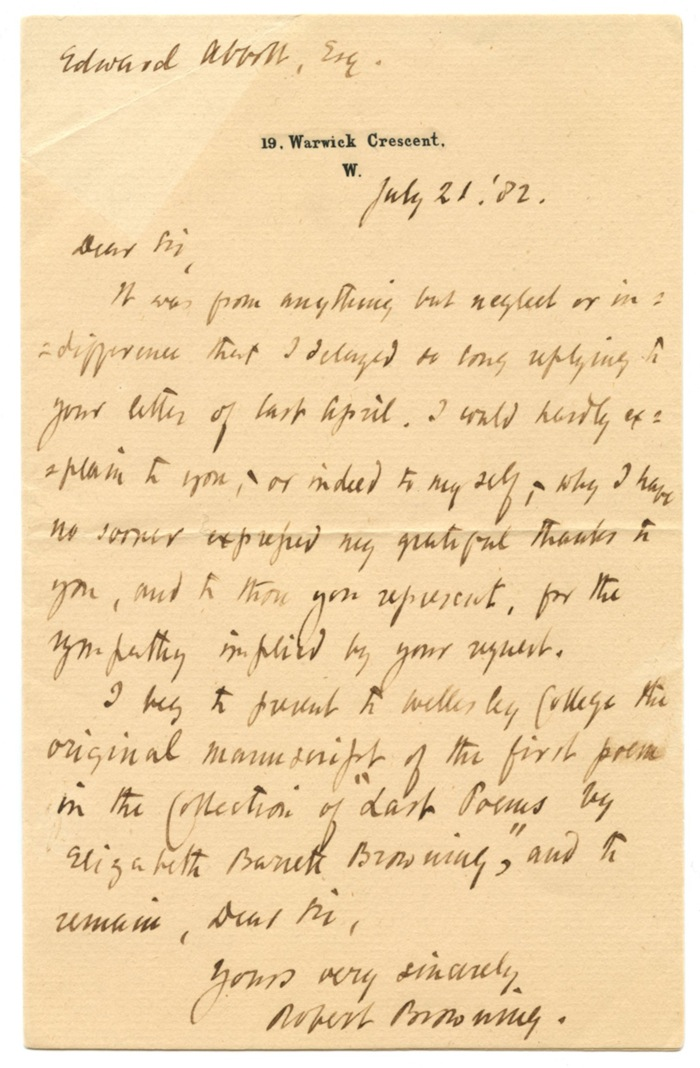 Edward Abbott, Esq.
19. Warwick Crescent,
W.
July 21. '82.
Dear Sir,
It was from anything but neglect or in=
=difference that I delayed so long replying to
your letter of last April. I could hardly ex=
=plain to you, - or indeed to myself, - why I have
no sooner expressed my grateful thanks to
you, and to those you represent, for the
sympathy implied by your request.
I beg to present to Wellesley College the
original manuscript of the first poem
in the Collection of "Last Poems by
Elizabeth Barrett Browning," and to
remain, Dear Sir,
Yours very sincerely
Robert Browning.